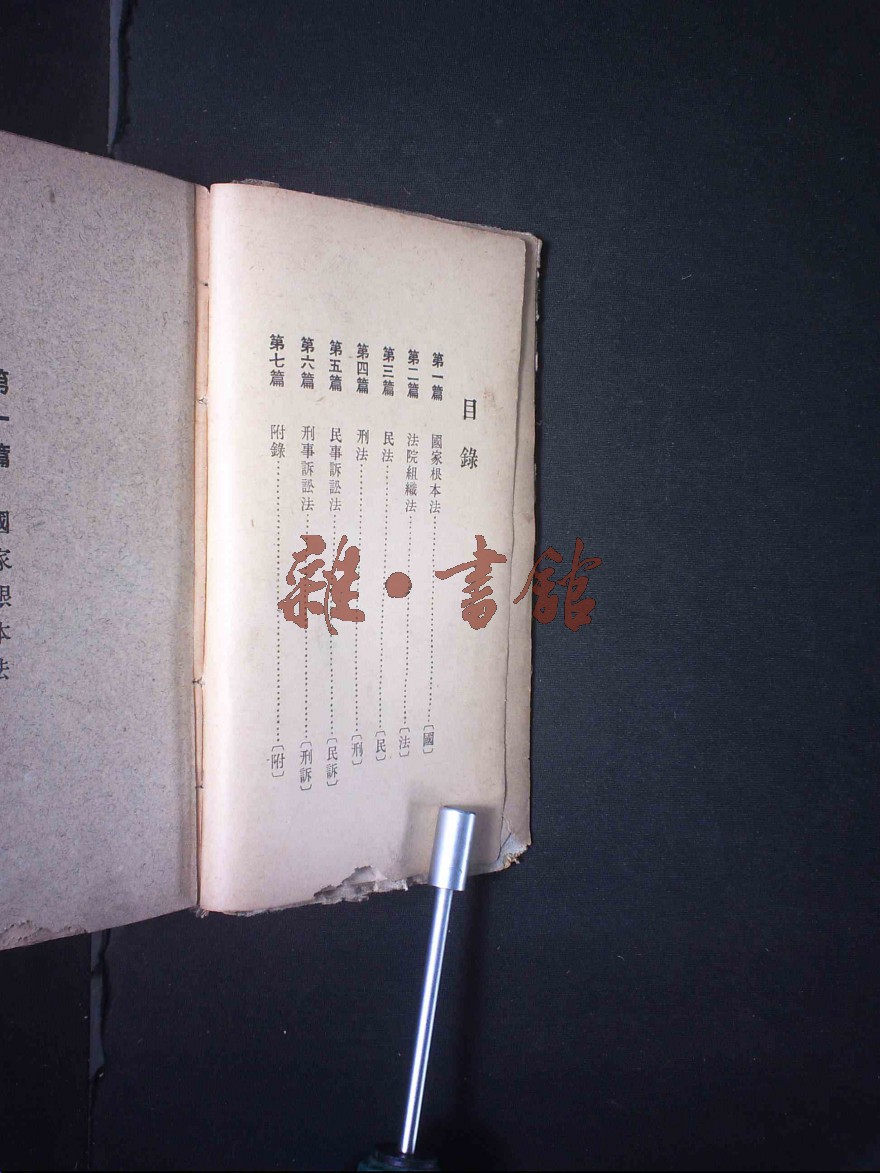 目錄
第一篇 國家根本法……〔國〕
第二篇 法院組織法……〔法〕
第三篇 民法……〔民〕
第四篇 刑法……〔刑〕
第五篇 民事訴訟法……〔民訴〕
第六篇 刑事訴訟法……〔刑訴〕
第七篇 附錄……〔附〕
第一篇 國家根本法
雜·書館